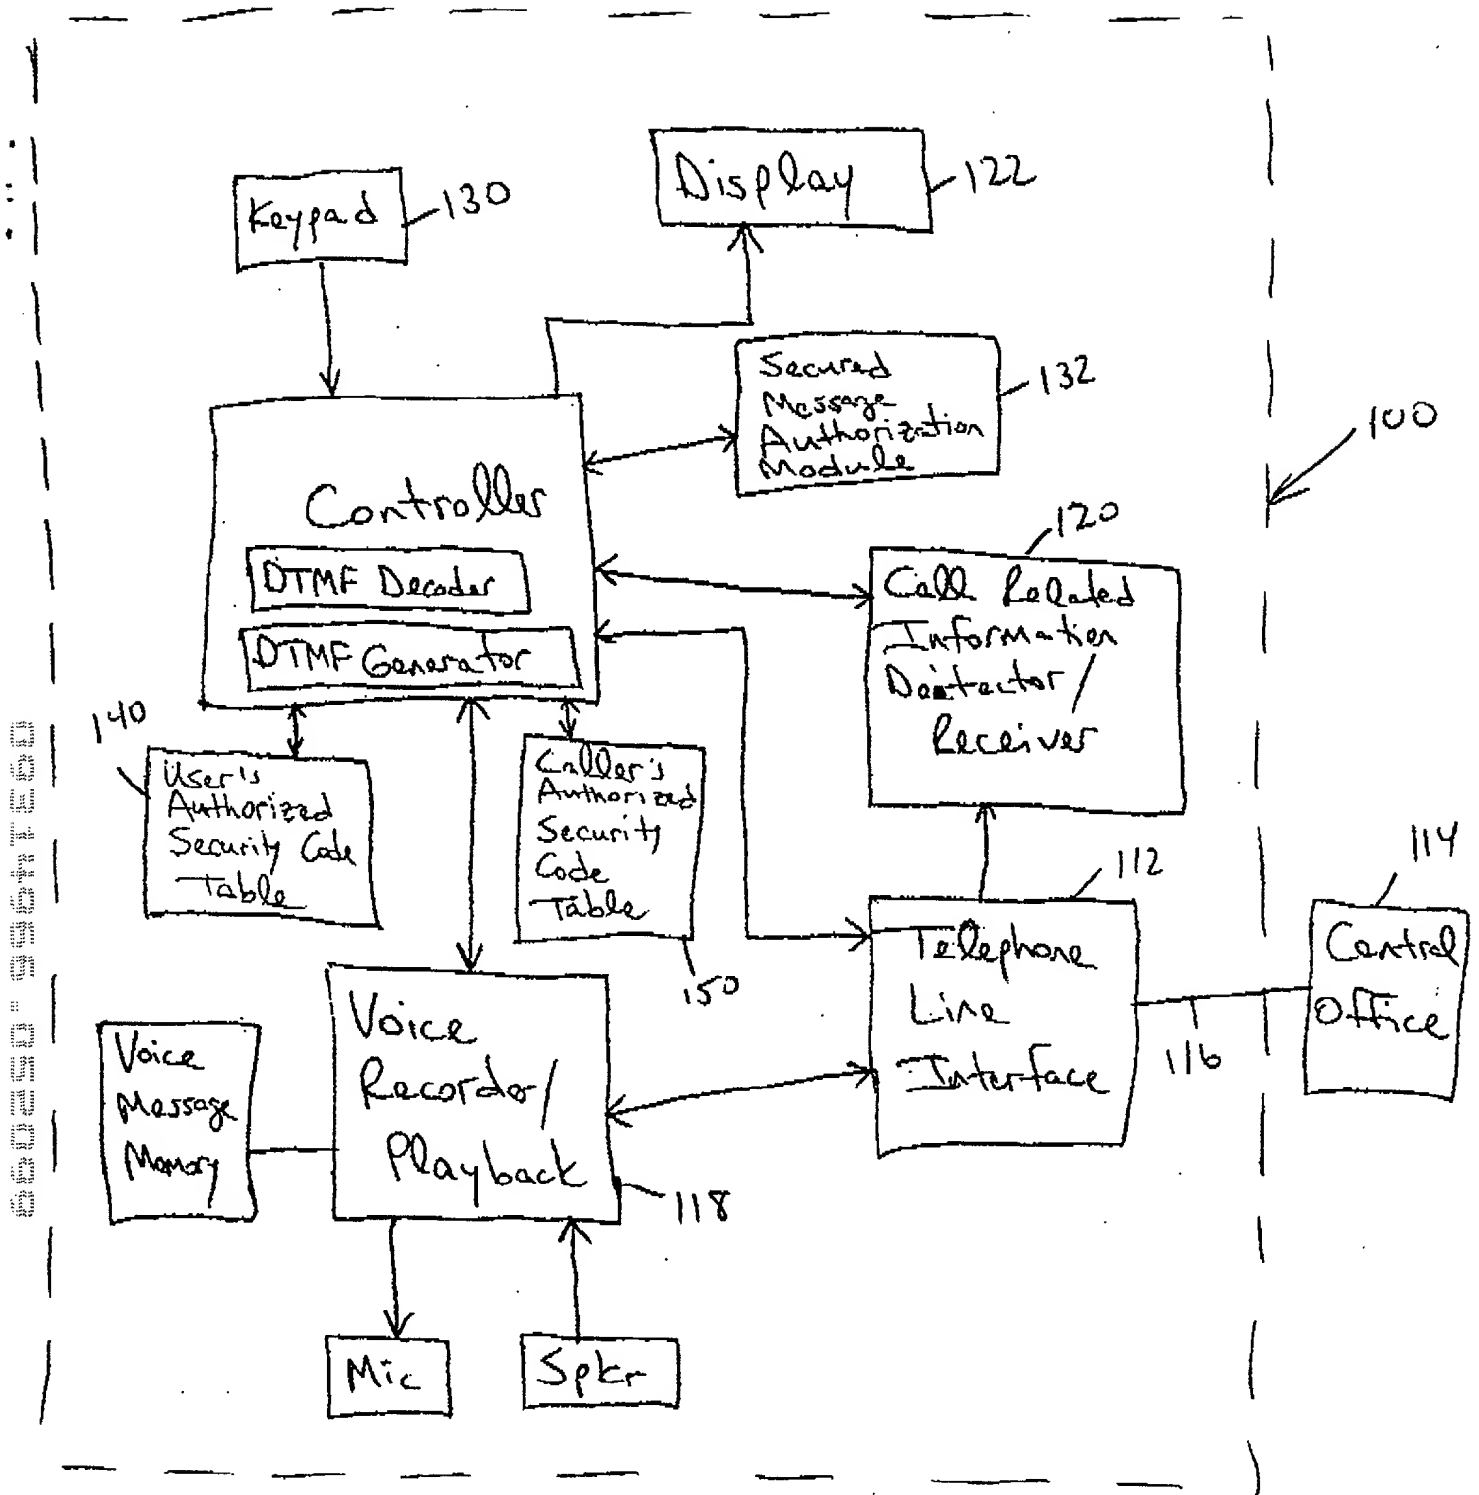 Display
122
Keypad
130
Secured
Message
Authorization
Module
132
100
Controller
DTMF Decoder
DTMF Generator
120
Call Related
Information
Detector/
Receiver
140
User's
Authorized
Security Code
Table
Caller's
Authorized
Security
Code
Table
150
112
Telephone
Line
Interface
114
Central
Office
116
Voice
Recorder/
Playback
118
Voice
Message
Memory
Mic
Spkr